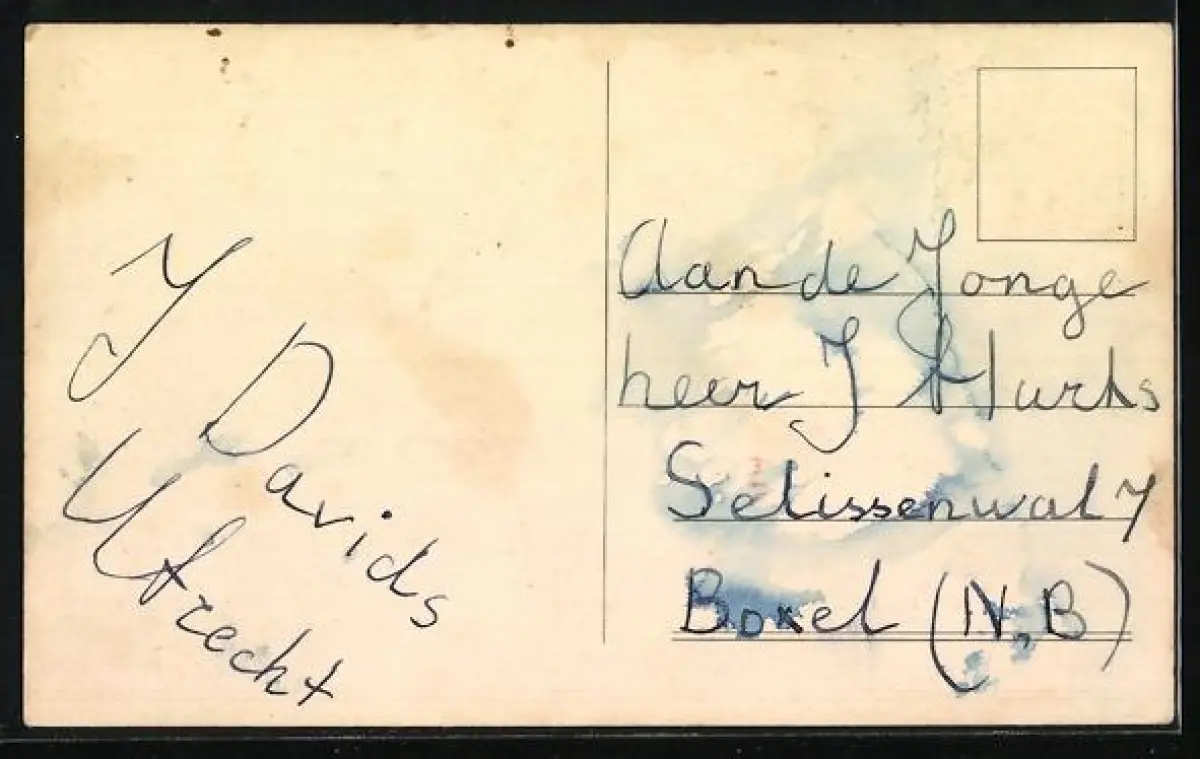 J
Davids
Utrecht
Aan de Jonge
heer J Hurks
Selissenwal 7
Boxel (N.B)